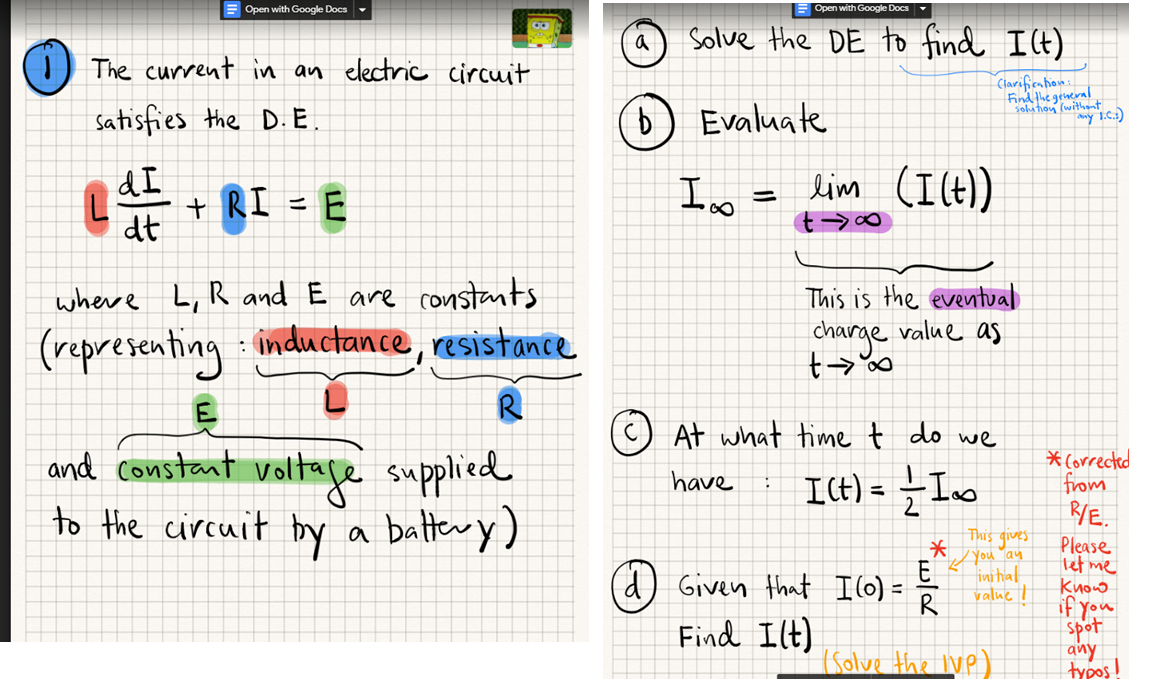 Open with Google Docs
1 The current in an electric circuit
satisfies the D.E.
L dI/dt + RI = E
where L, R and E are constants
(representing : inductance, resistance
L
R
E
and constant voltage supplied
to the circuit by a battery)
Open with Google Docs
a Solve the DE to find I(t)
Clarification:
Find the general
solution (without
any I.C.s)
b Evaluate
I∞ = lim (I(t))
t → ∞
This is the eventual
charge value as
t → ∞
c At what time t do we
have : I(t) = 1/2 I∞
* Corrected
from
R/E.
Please
let me
know
if you
spot
any
typos!
d Given that I(0) = E/R *
This gives
you an
initial
value!
Find I(t)
(Solve the IVP)